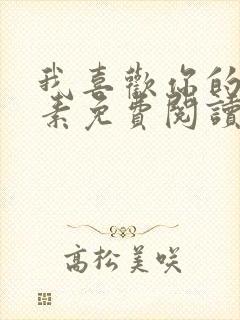 我喜歡你的
素免費閱讀
高松美咲